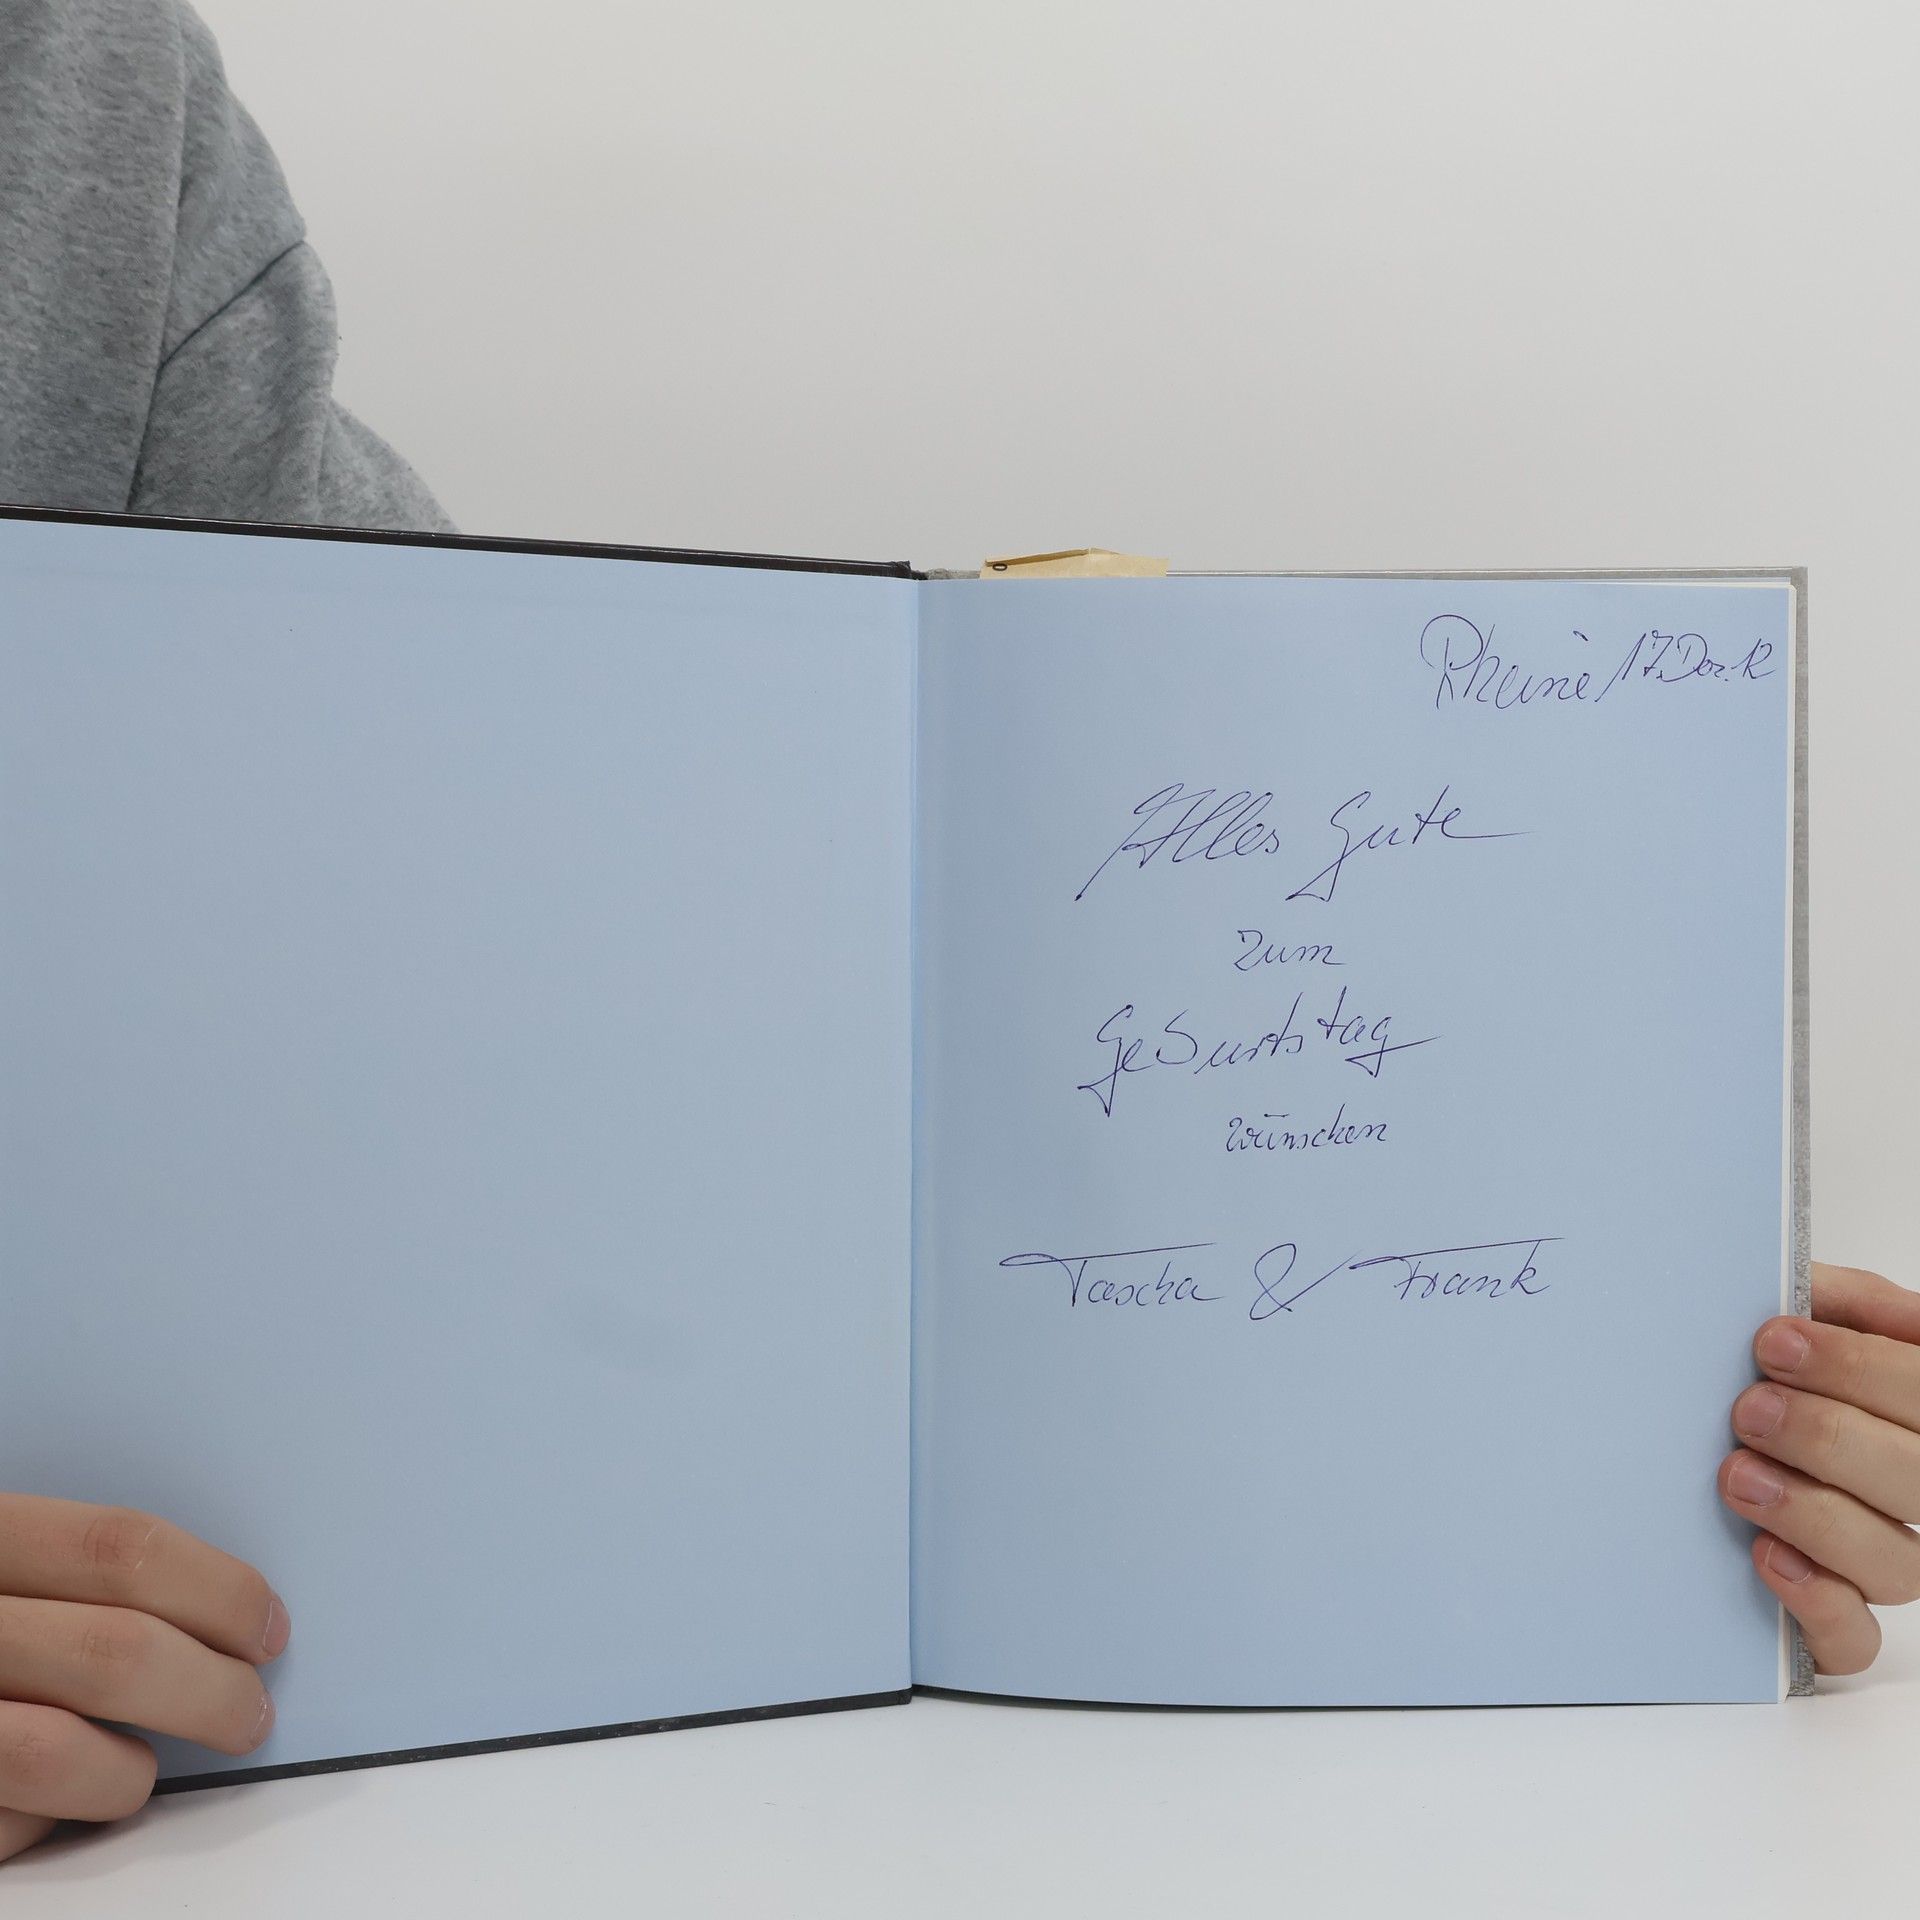 Rheine, 17. Dez. 12
Alles Gute
zum
Geburtstag
wünschen
Tascha & Frank